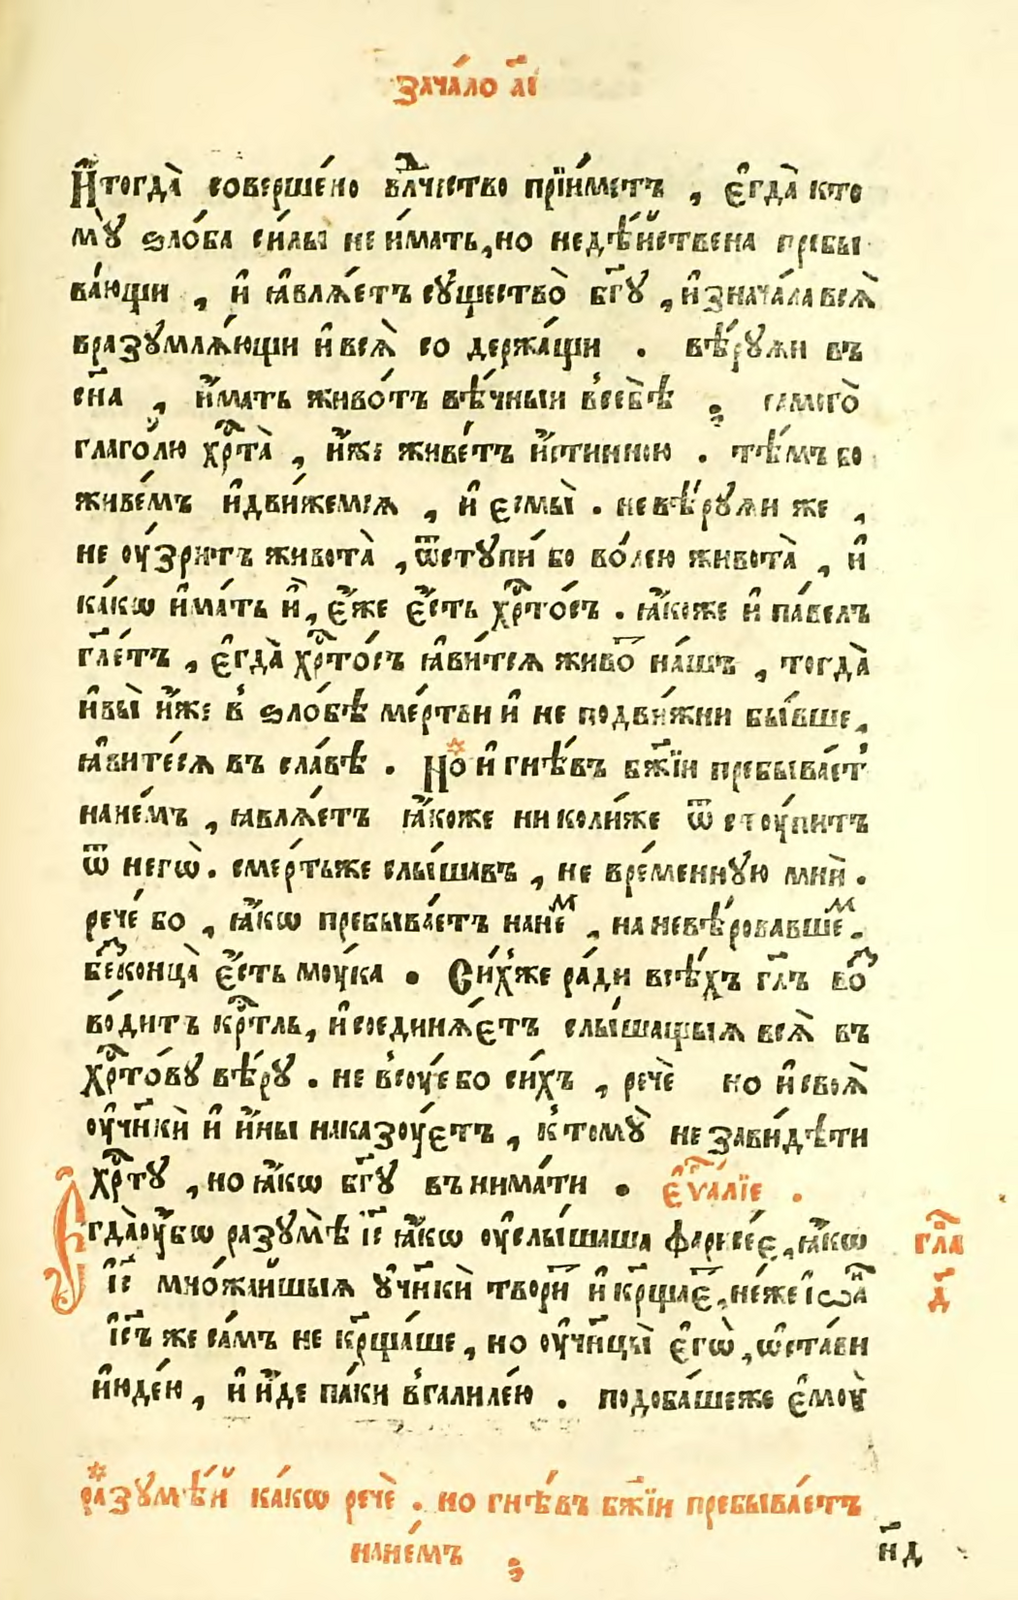 зача́ло а҃і
И҆тогда̀ совершє́но влⷣчество прїи́метъ , є҆гда̀ кто
мꙋ̀ ѕло́ба си́лы не и́мать, но недѣ́йствена пребы
ва́ющи , и҆ ꙗ҆влѧ́етъ сꙋщество̀ бг҃ꙋ , и҆знача́ла всѧ̀
вразꙋмлѧ́ющи и҆ всѧ̀ со держа́щи . вѣ́рꙋѧи въ
сн҃а , и҆́мать живо́тъ вѣ́чныи в̾себѣ̀ , самого̀
глаго́лю хрⷭ҇та̀ , и҆́же живе́тъ и҆́стинною . тѣ́мъ бо
живе́мъ и҆дви́жемсѧ , и҆ єсмы̀ . невѣ́рꙋѧи же ,
не оу́зритъ живота̀ , ѿстꙋпи́ бо во́лею живота̀ , и҆
ка́кѡ и҆́мать и҆̀, є҆́же є҆́сть хрⷭ҇то́съ . ꙗ҆́коже и҆ па́велъ
гл҃етъ , є҆гда̀ хрⷭ҇то́съ ꙗ҆ви́тсѧ живо́т на́шъ , тогда̀
и҆вы̀ и҆́же в̾ ѕло́бѣ ме́ртви и҆ не подви́жни бы́вше ,
ꙗ҆вите́сѧ въ сла́вѣ . Но̀ и҆ гнѣ́въ бж҃їи пребыва́ет̾
нане́мъ , ꙗвлѧ́етъ ꙗ҆́коже ни коли́же ѿ стоу́питъ
ѿ негѡ̀ . сме́ртьже слы́шавъ , не вре́меннꙋю мнѝ .
рече́ бо , ꙗ҆́кѡ пребыва́етъ нанеⷨ , на невѣ́ровавшеⷨ .
беⷥконца̀ є҆́сть моу́ка . Си́хже ра́ди всѣ́хъ гл҃ъ воⷥ
во́дитъ крⷭ҇тль, и҆соединѧ́етъ слы́шащыѧ всѧ̀ въ
хрⷭ҇то́вꙋ вѣ́рꙋ . не в̾соу́е бо си́хъ , речѐ но и҆ своѧ̀
оу҆чн҃кѝ и҆ и҆́ны наказоу́етъ , к̾томꙋ̀ не зави́дѣти
хрⷭ҇тꙋ , но ꙗ҆́кѡ бг҃ꙋ вънима́ти . є҆ѵⷢ҇а́лїе .
Єгда̀оу҆́бѡ разꙋмѣ̀ і҆с҃ ꙗ҆́кѡ оу҆слы́шаша фарисе́є, ꙗ҆́кѡ
і҆с҃ мно́жаишыѧ ꙋ҆чн҃кѝ твори́т и҆ крⷭ҇щает , не́же і҆ѡⷩ҇а
і҆с҃ъ же са́мъ не крⷭ҇ща́ше , но оу҆чн҃цы̀ є҆гѡ̀ , ѡ҆ста́ви
и҆юде́ю , и҆ и҆́де па́ки в̾галиле́ю . подоба́шеже є҆моу̀
глⷡ҇а
д҃
разꙋмѣ́й ка́кѡ речѐ . но гнѣ́въ бж҃їи пребыва́етъ
нане́мъ
н҃д